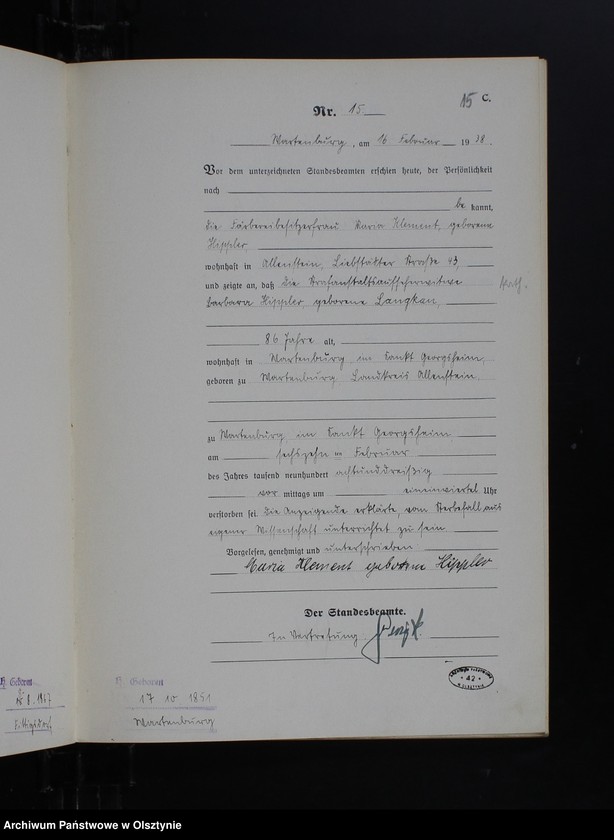 15 C.
Nr. 15
Wartenburg, am 16 Februar 19 38.
Vor dem unterzeichneten Standesbeamten erschien heute, der Persönlichkeit
nach
be kannt,
die Färbereibesitzerfrau Maria Klement, geborene
Hippler,
wohnhaft in Allenstein, Liebstädter Straße 43,
und zeigte an, daß die Strafanstaltsaufseherwitwe
Kath.
Barbara Hippler, geborene Langkau,
86 Jahre alt,
wohnhaft in Wartenburg im Sankt Georgsheim,
geboren zu Wartenburg Landkreis Allenstein.
zu Wartenburg im Sankt Georgsheim
am sechszehn en Februar
des Jahres tausend neunhundert achtunddreißig
vor mittags um eineinviertel Uhr
verstorben sei. Die Anzeigende erklärte, vom Sterbefall aus
eigener Wissenschaft unterrichtet zu sein
Vorgelesen, genehmigt und unterschrieben
Maria Klement geborene Hippler
Der Standesbeamte.
In Vertretung
42
Geboren
17 10 1851
Wartenburg
Geboren
Archiwum Państwowe w Olsztynie